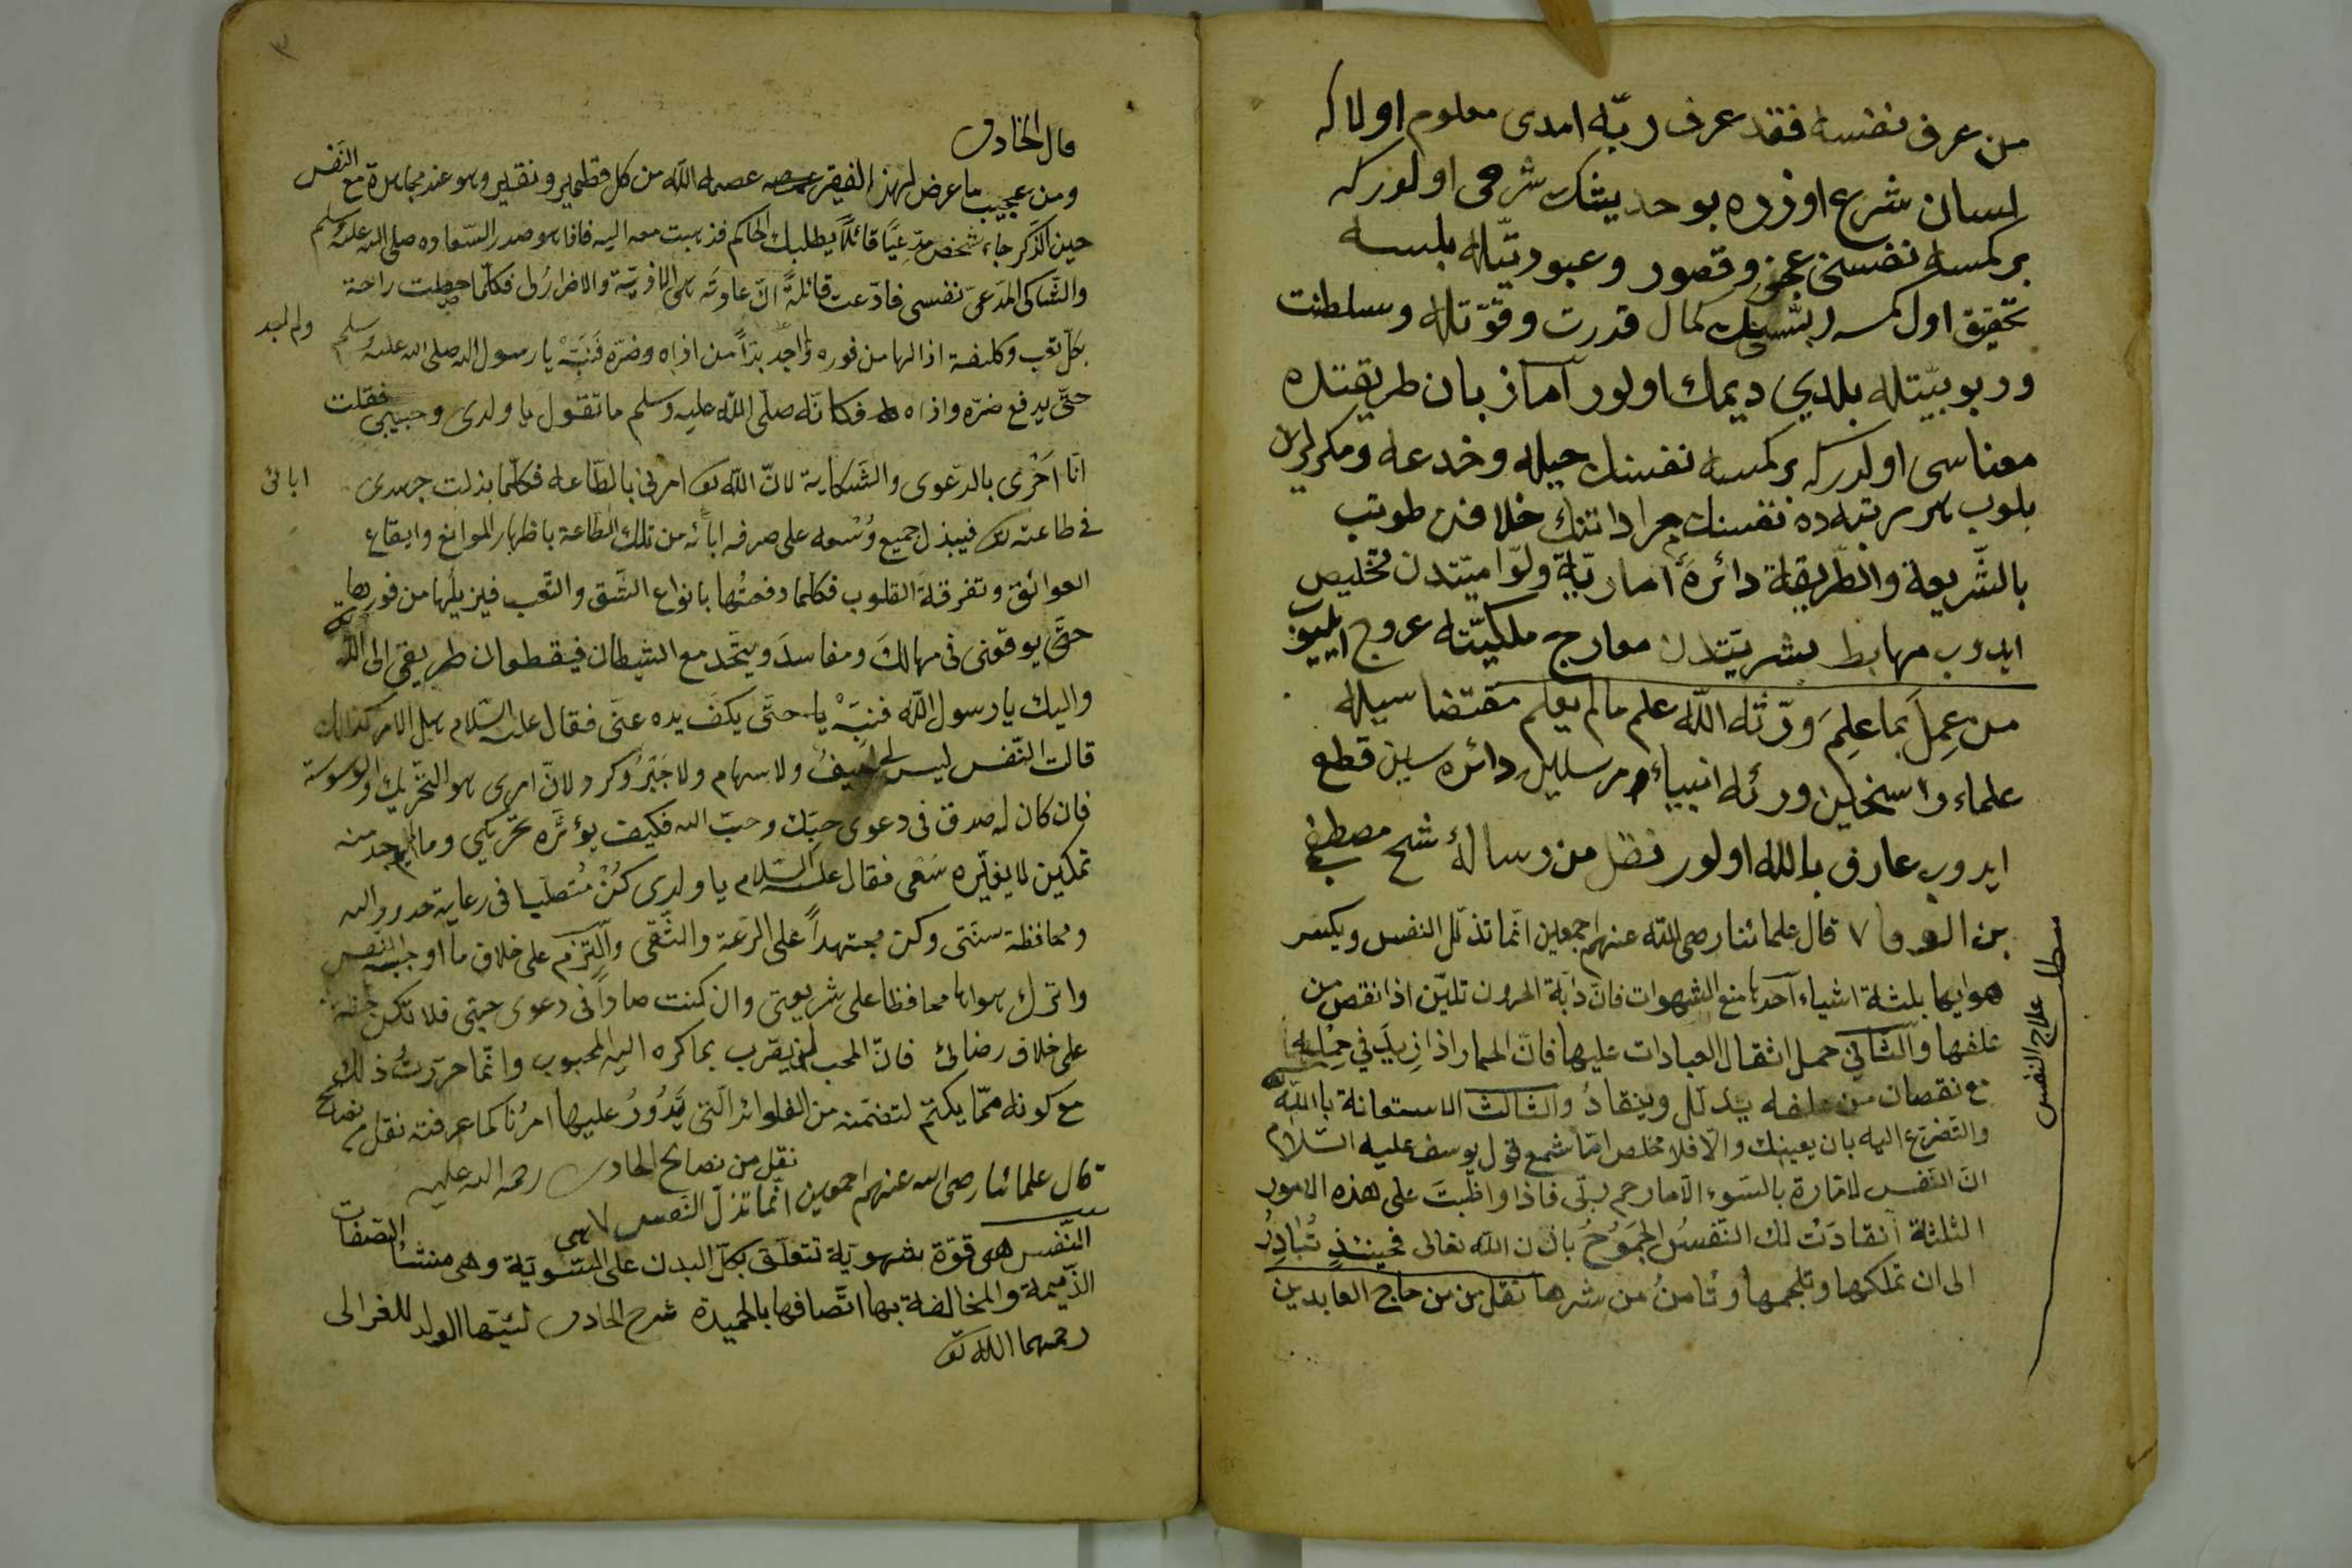 من عرف نفسه فقد عرف ربّه امدى معلوم اولا كه
لسان شرع اوزره بو حديثك شرحى اولدركه
بر كمسه نفسنى عجز و قصور و عبوديّتله بلسه
تحقيق اول كمسه ربّسنك كمال قدرت و قوّتله و سلطنت
و ربوبيّتله بلدى ديمك اولور اما زبان طريقتده
معناسى اولدركه بر كمسه نفسنك حيله و خدعه و مكرلرين
بلوب هر مرتبه ده نفسنك مراداتنك خلافن طوتب
بالشّريعة والطّريقة دائرهٔ امّاريّة ولوّاميّتدن تخليص
ايدوب مهابط بشريّتدن معارج ملكيّته عروج ايليوب
من عمل بما علم ورّثه اللّه علم مالم يعلم مقتضاسيله
علماء راسخلين ورثهٔ انبياء و مرسلين دائره سين قطع
ايدوب عارف بالله اولور نقل من رسالهٔ شيخ مصطفى
بن الوفا ٧ قال علمائنا رضى اللّه عنهم اجمعين انّما تذلّل النفس ويكسر
هوايها بثلثة اشياء احدها منع الشهوات فانّ دابّة الحرون تليّن اذا نقص من
علفها والثّانى حمل اثقال العبادات عليها فانّ الحمار اذا زيد فى حمله
مع نقصان من علفه يتذلّل وينقاد والثالث الاستعانة بااللّه
والتضرّع اليه بان يعينك والّا فلا مخلص امّا تسمع قول يوسف عليه السّلام
انّ النّفس لامّارة بالسّوء الّا ما رحم ربّى فاذا واظبت على هذه الامور
الثلثة انقادت لك النّفس الجموح باذن اللّه تعالى فحينئذ تبادر
الى ان تملكها وتلجمها وتأمن من شرها نقل من من‍هاج العابدين
مطلب علاج النفس
٣
قال الخادمى
ومن عجيب ما عرض لهذا الفقير عصمه اللّه من كل قطمير ونقير وهو عند مجاهدة مع النّفس
حين الذّكر جاء شخص مدّعيًا قائلًا يطلبك الحاكم فذهبت معه اليه فاذا هو صدر السّعاده صلى الله عليه وسلم
والشّاكى المدّعى نفسى فادّعت قائلةً انّ عاوته هى الاذيّة والاضرار لى فكلّما حصلت راحة
بكلّ تعب وكلفة ازالها من فوره ولم اجد بدّاً من اذاه وضرّه فنبّه يا رسول الله صلى الله عليه وسلم
ولم اجد
حتّى يدفع ضرّه واذاه فكانّه صلّى اللّه عليه وسلم ما تقول يا ولدى وحبيبى فقلت
انا احرى بالدّعوى والشّكاية لانّ اللّه تع امرنى بالطّاعه فكلّما بذلت جهدى
ابائى
فى طاعته تع فيبذل جميع وسعه على صرفه ابائه من تلك الطّاعة باظهار الموانع وايقاع
العوائق وتفرقة القلوب فكلما دفعتها بانواع الشّق والتّعب فيزيلها من فورها
حتّى يوقعنى فى مهالك ومفاسد ويتّحد مع الشيطان فيقطعان طريقى الى اللّه
واليك يا رسول اللّه فنبّه يا حتّى يكفّ يده عنّى فقال عليه السّلام هل الامر كذلك
قالت النّفس ليس لى سيف ولا سهام ولا جبر وكره ولانّ امرى هو التّحريك والوسوسة
فان كان له صدق فى دعوى حبّك وحبّ الله فكيف يؤثّره تحريكى وما لم يوجد منه
تمكين لا يغيّره سعى فقال عليه السّلام يا ولدى كن متصلّبا فى رعاية حدود الله
ومحافظة سنّتى وكن مجتهداً على الرّعة والتّقى والتزم على خلاف ما اوجبه النفس
واترك هواها محافظا على شريعتى وان كنت صادقا فى دعوى حبتى فلا تكن
على خلاف رضائى فانّ المحب لن يقرب بما كره اليه المحبوب وانّما حرّرت ذلك
مع كونه ممّا يكتم لتضمّنه من الفوائد الّتى يدور عليها امرنا كما عرفته نقل من نصايح
نقل من نصايح الخادمى رحمة الله عليه
قال علمائنا رضى الله عنهم اجمعين انّما تذلّ النّفس
النّفس هى قوّة شهويّة تتعلّق بكلّ البدن على السّويّة وهى منشأ الصّفات
الذّميمة والمخالفة بها اتّصافها بالحميدة شرح الخادمى لايّها الولد للغزالى
رحمهما اللّه تع